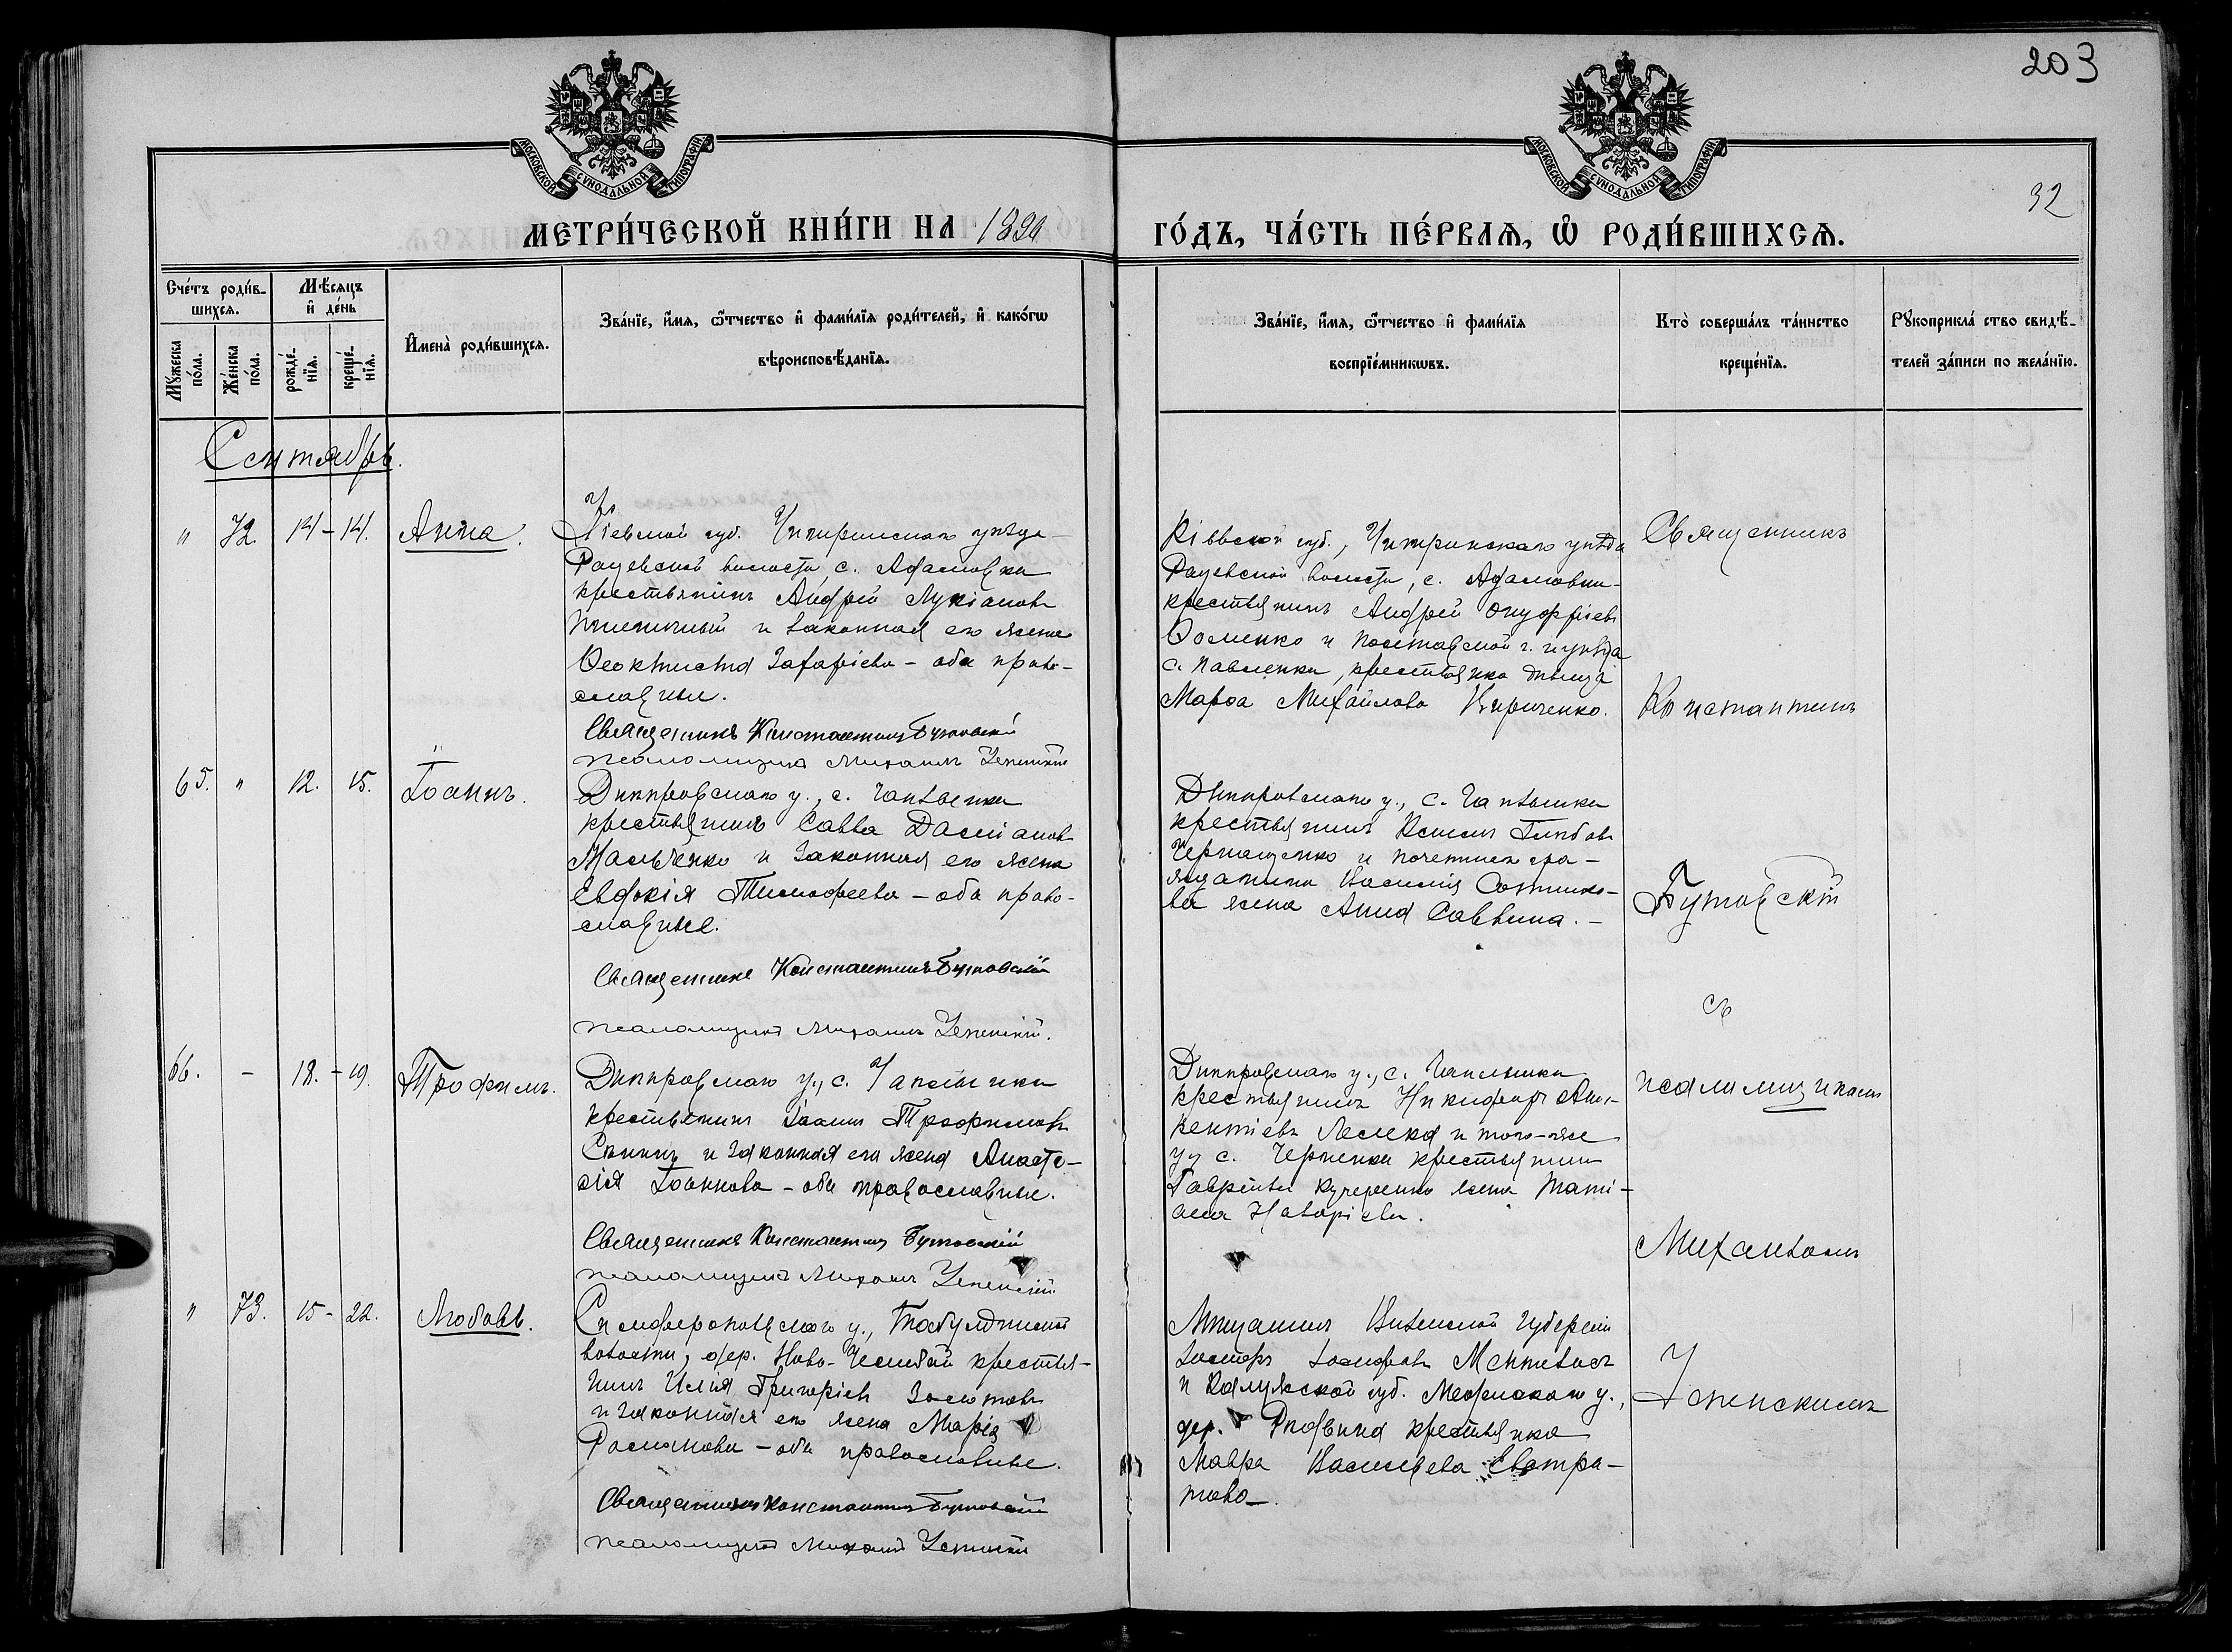 203
МОСКОВСКОЙ СѴНОДАЛЬНОЙ ТИПОГРАФІИ
МОСКОВСКОЙ СѴНОДАЛЬНОЙ ТИПОГРАФІИ
32
МЕТРИ́ЧЕСКОЙ КНИ́ГИ НА
ГО́ДЪ, ЧА́СТЬ ПЕ́РВАѦ, Ѽ РОДИ́ВШИХСѦ.
Сче́тъ роди́в-
шихся.
Мѣ́сяцъ
и҆ де́нь
Мꙋ́жеска
по́ла.
Же́нска
по́ла.
рожде́-
нїя.
креще́-
нїя.
И҆мена̀ роди́вшихся.
Зва́нїе, и҆́мя, ѻ҆́тчество и҆ фами́лїя роди́телей, и҆ како́гѡ
вѣроисповѣ́данїя.
Зва́нїе, и҆́мя, ѻ҆́тчество и҆ фами́лїя
воспрїе́мникѡвъ.
Кто̀ соверша́лъ та́инство
креще́нїя.
Рꙋкоприкла́ ство свидѣ́-
телей за́писи по жела́нїю.
Сентябрь.
" 72. 14 - 14. Анна.
Кіевской губ. Чигиринскаго уѣзда
Рацевской волости, с. Адамовки
крестьянинъ Андрей Лукіановъ
Пшеничный и законная его жена
Ѳеоктиста Захаріева - оба право-
славные.
Священникъ Константинъ Бутовскій
псаломщикъ Михаилъ Успенскій
Кіевской губ., Чигиринскаго уѣзда
Рацевской волости, с. Адамовки
крестьянинъ Андрей Онуфріевъ
и Полтавской г. и уѣзда
с. Павленки, крестьянка дѣвица
Марѳа Михайлова Кириченко.
Священникъ
Константинъ
Бутовскій
съ
псаломщикомъ
Михаиломъ
Успенскимъ
65. " 12. 15. Іоаннъ.
Днѣпровскаго у., с. Чаплынки
крестьянинъ Савва Даміановъ
и законная его жена
Евдокія Тимофеева - оба право-
славные.
Священникъ Константинъ Бутовскій
псаломщикъ Михаилъ Успенскій.
Днѣпровскаго у., с. Чаплынки
крестьянинъ Глѣбовъ
и почетнаго гра-
жданина Василія Сотнико-
ва жена Анна Саввина. -
66. - 18. - 19. Трофимъ.
Днѣпровскаго у., с. Чаплынки
крестьянинъ Іоаннъ Трофимовъ
и законная его жена Анаста-
сія Іоаннова - оба православные.
Священникъ Константинъ Бутовскій
псаломщикъ Михаилъ Успенскій
Днѣпровскаго у., с. Чаплынки
крестьянинъ Никифоръ
и того-же
у., с. Черненки крестьянина
Гавріила Кучеренко жена Тати-
ана
" 73. 15 - 22. Любовь.
Симферопольскаго у., Табулдинской
волости, дер. Ново- крестья-
нинъ Илія Григоріевъ Золотовъ
и законная его жена Марія
Романова - оба православные.
Священникъ Константинъ Бутовскій
псаломщикъ Михаилъ Успенскій
Мѣщанинъ Виленской губерніи
Іосифовъ
и Калужской губ. у.,
дер. крестьянка
Мавра Васильева Евстра-
това.